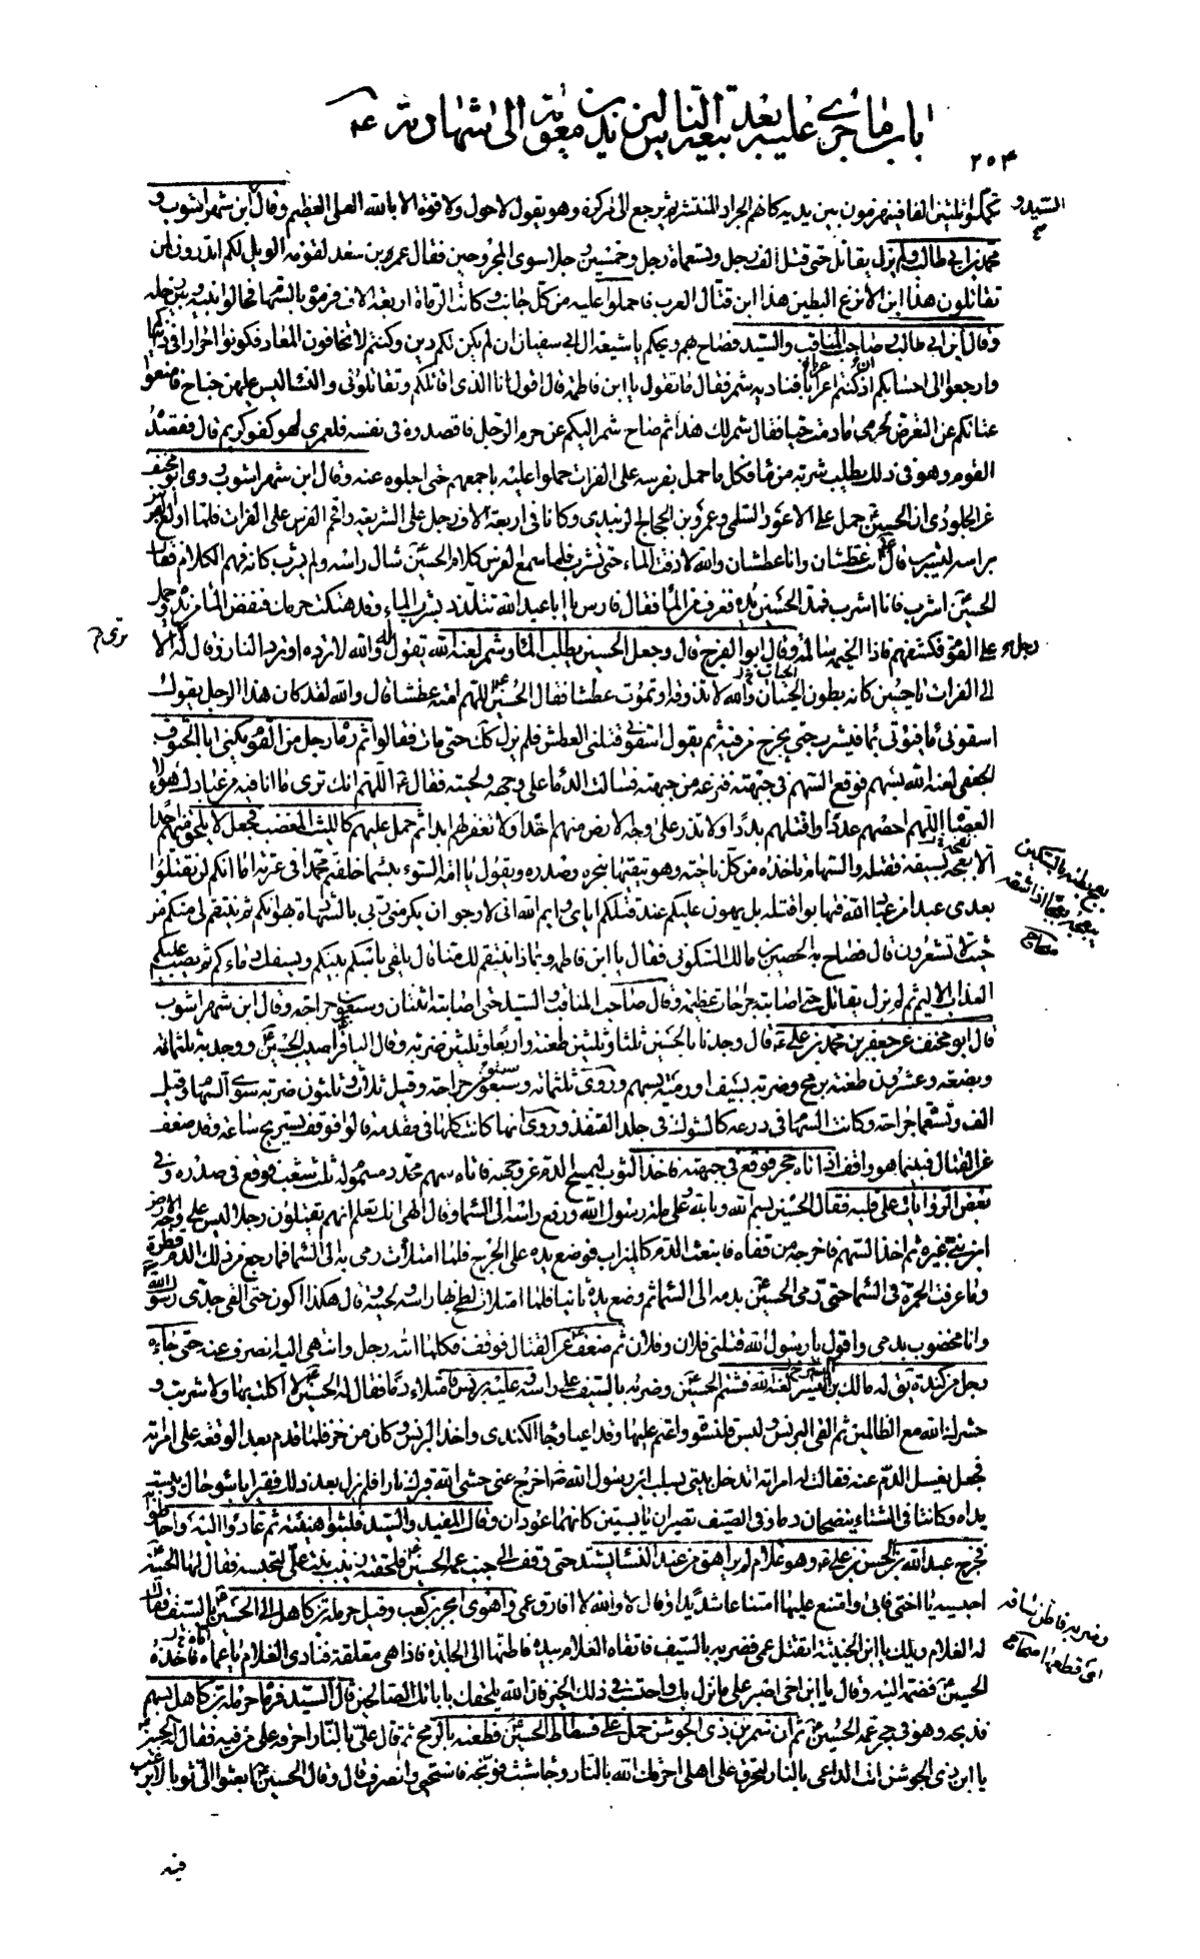 باب ما جرى عليه بعد بيعة الناس ليزيد بن معوية الى شهادته ع
٢٠٤
السيد و
تكملوا ثلثين الفا فينهزمون بين يديه كانهم الجراد المنتشر ثم يرجع الى مركزه وهو يقول لا حول ولا قوة الا بالله العلى العظيم وقال ابن شهراشوب و
محمد بن ابي طالب ولم يزل يقاتل حتى قتل الف رجل وتسعماة رجل وخمسين رجلا سوى المجروحين فقال عمر بن سعد لقومه الويل لكم اتدرون لمن
تقاتلون هذا ابن الانزع البطين هذا ابن قتال العرب فاحملوا عليه من كل جانب وكانت الرماة اربعة الاف فرموه بالسهام فحالوا بينه وبين رحله
وقال ابن ابي طالب وصاحب المناقب والسيد فصاح بهم ويحكم يا شيعة ال ابي سفيان ان لم يكن لكم دين وكنتم لا تخافون المعاد فكونوا احرارا في دنياكم
وارجعوا الى احسابكم اذ كنتم اعرابا فناداه شمر فقال ما تقول يا ابن فاطمة قال اقول انا الذي اقاتلكم وتقاتلوني والنساء ليس عليهن جناح فامنعوا
عتاتكم عن التعرض لحرمي ما دمت حيا فقال شمر لك هذا ثم صاح شمر اليكم عن حرم الرجل فاقصدوه في نفسه فلعمري لهو كفو كريم قال فقصده
القوم وهو في ذلك يطلب شربة من ماء فكلما حمل بفرسه على الفرات حملوا عليه باجمعهم حتى اجلوه عنه وقال ابن شهراشوب وروى ابو مخنف
عن الجلودي ان الحسين ع حمل على الاعور السلمي وعمرو بن الحجاج الزبيدي وكانا في اربعة الاف رجل على الشريعة واقحم الفرس على الفرات فلما اولغ الفرس
براسه ليشرب قال ع انت عطشان وانا عطشان والله لا ذقت الماء حتى تشرب فلما سمع الفرس كلام الحسين ع شال راسه ولم يشرب كانه فهم الكلام فقال
الحسين ع اشرب فانا اشرب فمد الحسين يده فغرف من الماء فقال فارس يا ابا عبد الله تتلذذ بشرب الماء وقد هتكت حرمك فنفض الماء من يده وحمل
على القوم فكشفهم فاذا الخيمة سالمة وقال ابو الفرج قال وجعل الحسين يطلب الماء وشمر لعنه الله يقول له والله لا ترده او ترد النار فقال له رجل الا
ترى م
الى الفرات يا حسين كانه بطون الحيات والله لا تذوقه او تموت عطشا فقال الحسين ع اللهم امته عطشا قال والله لقد كان هذا الرجل يقول
اسقوني ماء فيؤتى بماء فيشرب حتى يخرج من فيه ثم يقول اسقوني قتلني العطش فلم يزل كذلك حتى مات فقالوا ثم رماه رجل من القوم يكنى ابا الحتوف
الجعفي لعنه الله بسهم فوقع السهم في جبهته فنزعه من جبهته فسالت الدماء على وجهه ولحيته فقال ع اللهم انك ترى ما انا فيه من عبادك هؤلاء
العصاة اللهم احصهم عددا واقتلهم بددا ولا تذر على وجه الارض منهم احدا ولا تغفر لهم ابدا ثم حمل عليهم كالليث المغضب فجعل لا يلحق منهم احدا
الا بعجه بسيفه فقتله والسهام تاخذه من كل ناحية وهو يتقيها بنحره وصدره ويقول يا امة السوء بئسما خلفتم محمدا في عترته اما انكم لن تقتلوا
بعج بطنه بالسكين
يبعجه بعجا اذا شقه
صحاح
بعدي عبدا من عباد الله فتهابوا قتله بل يهون عليكم عند قتلكم اياي وايم الله اني لارجو ان يكرمني ربي بالشهادة بهوانكم ثم ينتقم لي منكم من
حيث لا تشعرون قال فصاح به الحصين بن مالك السكوني فقال يا ابن فاطمة وبماذا ينتقم لك منا قال يلقي باسكم بينكم ويسفك دماءكم ثم يصب عليكم
العذاب الاليم ثم لم يزل يقاتل حتى اصابته جراحات عظيمة وقال صاحب المناقب والسيد حتى اصابته اثنتان وسبعون جراحة وقال ابن شهراشوب
قال ابو مخنف عن جعفر بن محمد بن علي ع قال وجدنا بالحسين ثلثا وثلثين طعنة واربعا وثلثين ضربة وقال الباقر ع اصيب الحسين ع ووجد به ثلثمائة
وبضعة وعشرون طعنة برمح وضربة بسيف او رمية بسهم وروى ثلثمائة وستون جراحة وقيل ثلاث وثلثون ضربة سوى السهام وقيل
الف وتسعمائة جراحة وكانت السهام في درعه كالشوك في جلد القنفذ وروى انها كانت كلها في مقدمه قالوا فوقف يستريح ساعة وقد ضعف
عن القتال فبينما هو واقف اذ اتاه حجر فوقع في جبهته فاخذ الثوب ليمسح الدم عن وجهه فاتاه سهم محدد مسموم له ثلث شعب فوقع في صدره وفي
بعض الروايات على قلبه فقال الحسين بسم الله وبالله وعلى ملة رسول الله ورفع راسه الى السماء وقال الهي انك تعلم انهم يقتلون رجلا ليس على وجه الارض
ابن نبي غيره ثم اخذ السهم فاخرجه من قفاه فانبعث الدم كالميزاب فوضع يده على الجرح فلما امتلأت رمى به الى السماء فما رجع من ذلك الدم قطرة
وما عرفت الحمرة في السماء حتى رمى الحسين ع بدمه الى السماء ثم وضع يده ثانيا فلما امتلات لطخ بها راسه ولحيته وقال هكذا اكون حتى القى جدي رسول الله
وانا مخضوب بدمي واقول يا رسول الله قتلني فلان وفلان ثم ضعف عن القتال فوقف فكلما اتاه رجل وانتهى اليه انصرف عنه حتى جاءه
رجل من كندة يقال له مالك بن اليسر لعنه الله فشتم الحسين ع وضربه بالسيف على راسه وعليه برنس فامتلاء دما فقال له الحسين ع لا اكلت بها ولا شربت و
حشرك الله مع الظالمين ثم القى البرنس ولبس قلنسوة واعتم عليها وقد اعيا وجاء الكندي واخذ البرنس وكان من خز فلما قدم بعد الوقعة على امراته
فجعل يغسل الدم عنه فقالت له امراته اتدخل بيتي بسلب ابن رسول الله ص اخرج عني حشى الله قبرك نارا فلم يزل بعد ذلك فقيرا باسوء حال ويبست
يداه وكانتا في الشتاء ينضحان دما وفي الصيف تصيران يابستين كانهما عودان وقال المفيد والسيد فلبثوا هنيئة ثم عادوا اليه واحاطوا به
فخرج عبد الله بن الحسن بن علي ع وهو غلام لم يراهق من عند النساء يشتد حتى وقف الى جنب عمه الحسين ع فلحقته زينب بنت علي لتحبسه فقال لها الحسين
احبسيه يا اختي فابى وامتنع عليها امتناعا شديدا وقال لا والله لا افارق عمي واهوى ابجر بن كعب وقيل حرملة بن كاهل الى الحسين ع بالسيف فقال
وضربه فاطن ساقه
اي قطعها صحاح
له الغلام ويلك يا ابن الخبيثة اتقتل عمي فضربه بالسيف فاتقاه الغلام بيده فاطنها الى الجلدة فاذا هي معلقة فنادى الغلام يا عماه فاخذه
الحسين ع فضمه اليه وقال يا ابن اخي اصبر على ما نزل بك واحتسب في ذلك الخير فان الله يلحقك بابائك الصالحين قال السيد فرماه حرملة بن كاهل بسهم
فذبحه وهو في حجر عمه الحسين ع ثم ان شمر بن ذي الجوشن حمل على فسطاط الحسين ع فطعنه بالرمح ثم قال علي بالنار احرقه على من فيه فقال له الحسين
يا ابن ذي الجوشن انت الداعي بالنار لتحرق على اهلي احرقك الله بالنار وجاء شبث فوبخه فاستحيى وانصرف قال وقال الحسين ع ابعثوا الي ثوبا لا يرغب
فيه